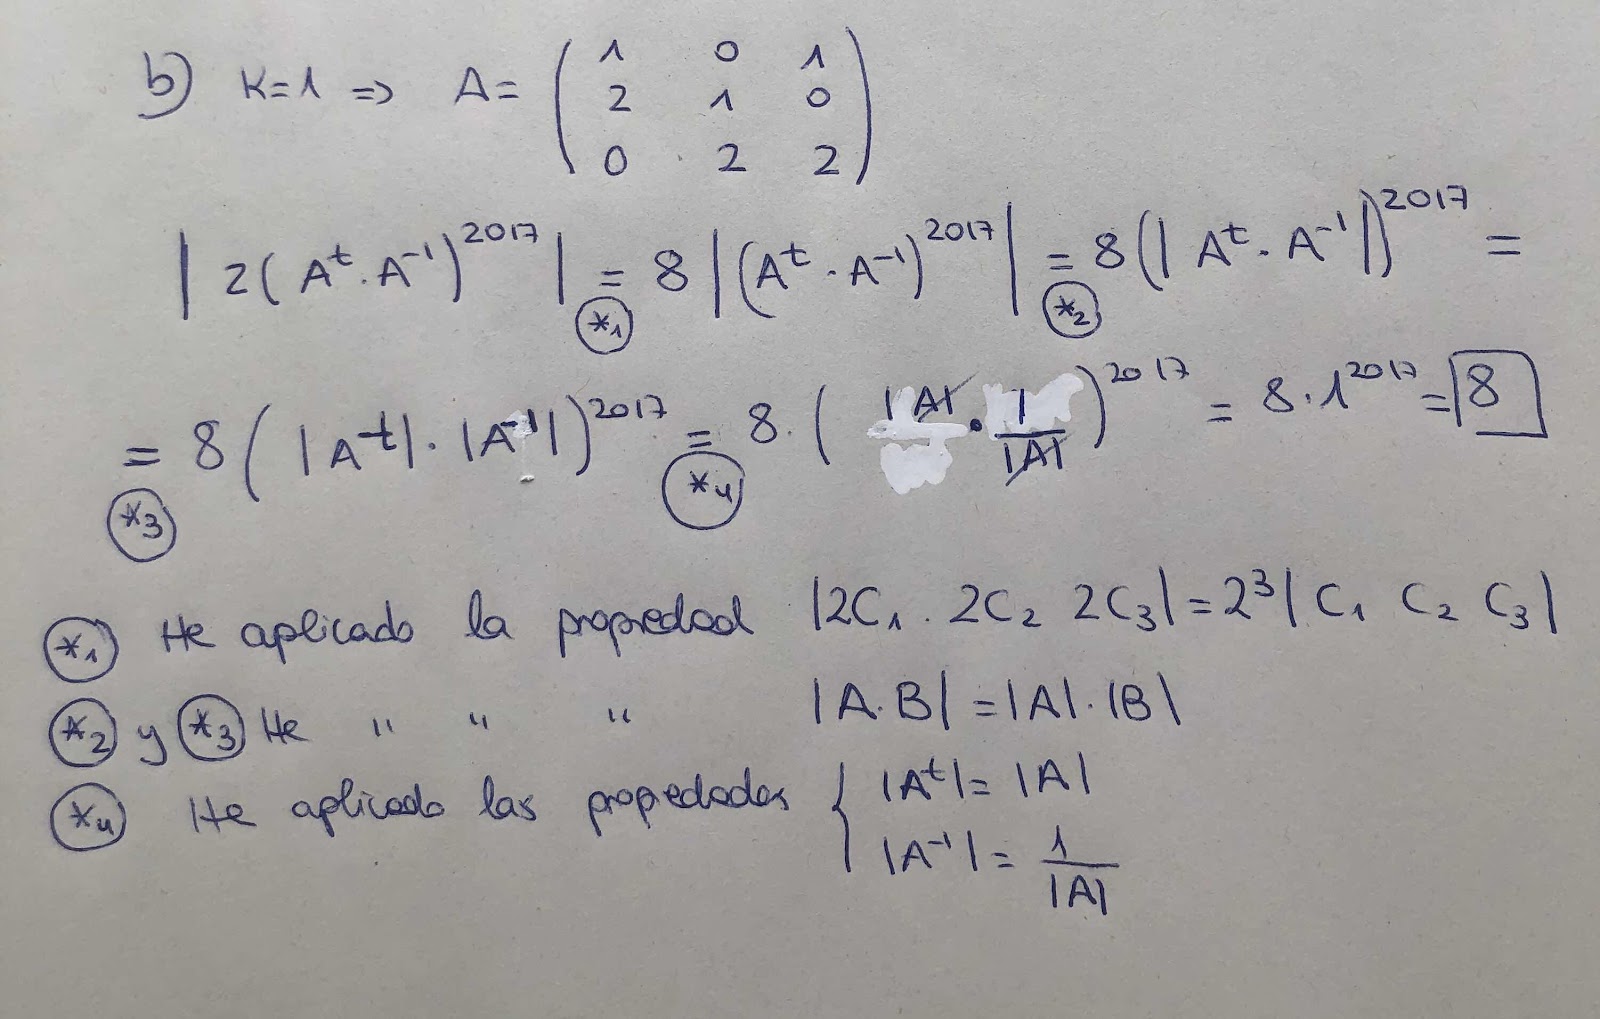 b) K=1 => A= ( 1 0 1
2 1 0
0 2 2 )
| 2(Aᵗ·A⁻¹)²⁰¹⁷ | = 8 |(Aᵗ·A⁻¹)²⁰¹⁷| = 8(|Aᵗ·A⁻¹|)²⁰¹⁷ =
*1 *2
= 8(|Aᵗ|·|A⁻¹|)²⁰¹⁷ = 8·(|A|·1/|A|)²⁰¹⁷ = 8·1²⁰¹⁷ = 8
*3 *4
*1 He aplicado la propiedad |2C₁ . 2C₂ 2C₃| = 2³|C₁ C₂ C₃|
*2 y *3 He " " " |A·B| = |A|·|B|
*4 He aplicado las propiedades { |Aᵗ| = |A|
|A⁻¹| = 1/|A|